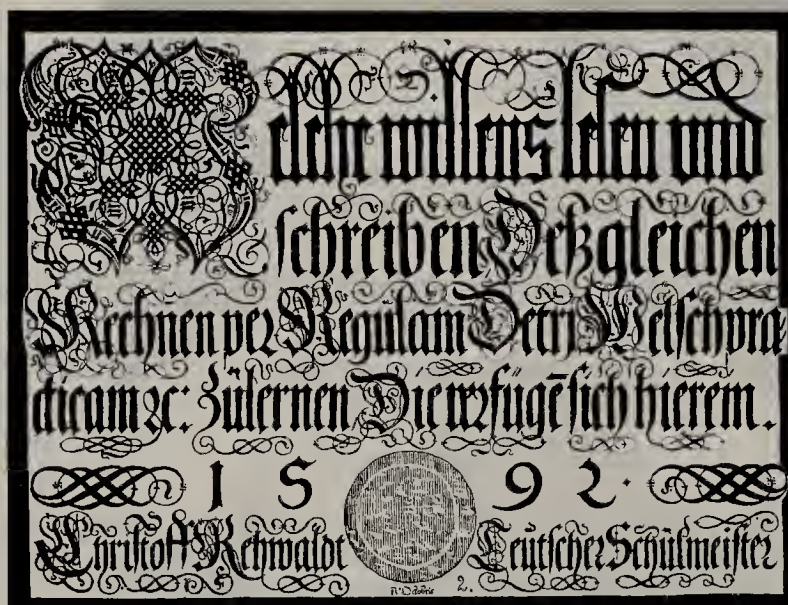 Welche willens lesen und
schreiben Deßgleichen
Rechnen per Regulam Detri Welsch pra
cticam ꝛc: Zůlernen Die verfügē sich hierein.
1592.
Christoff Rehwaldt Teutscher Schůlmeister